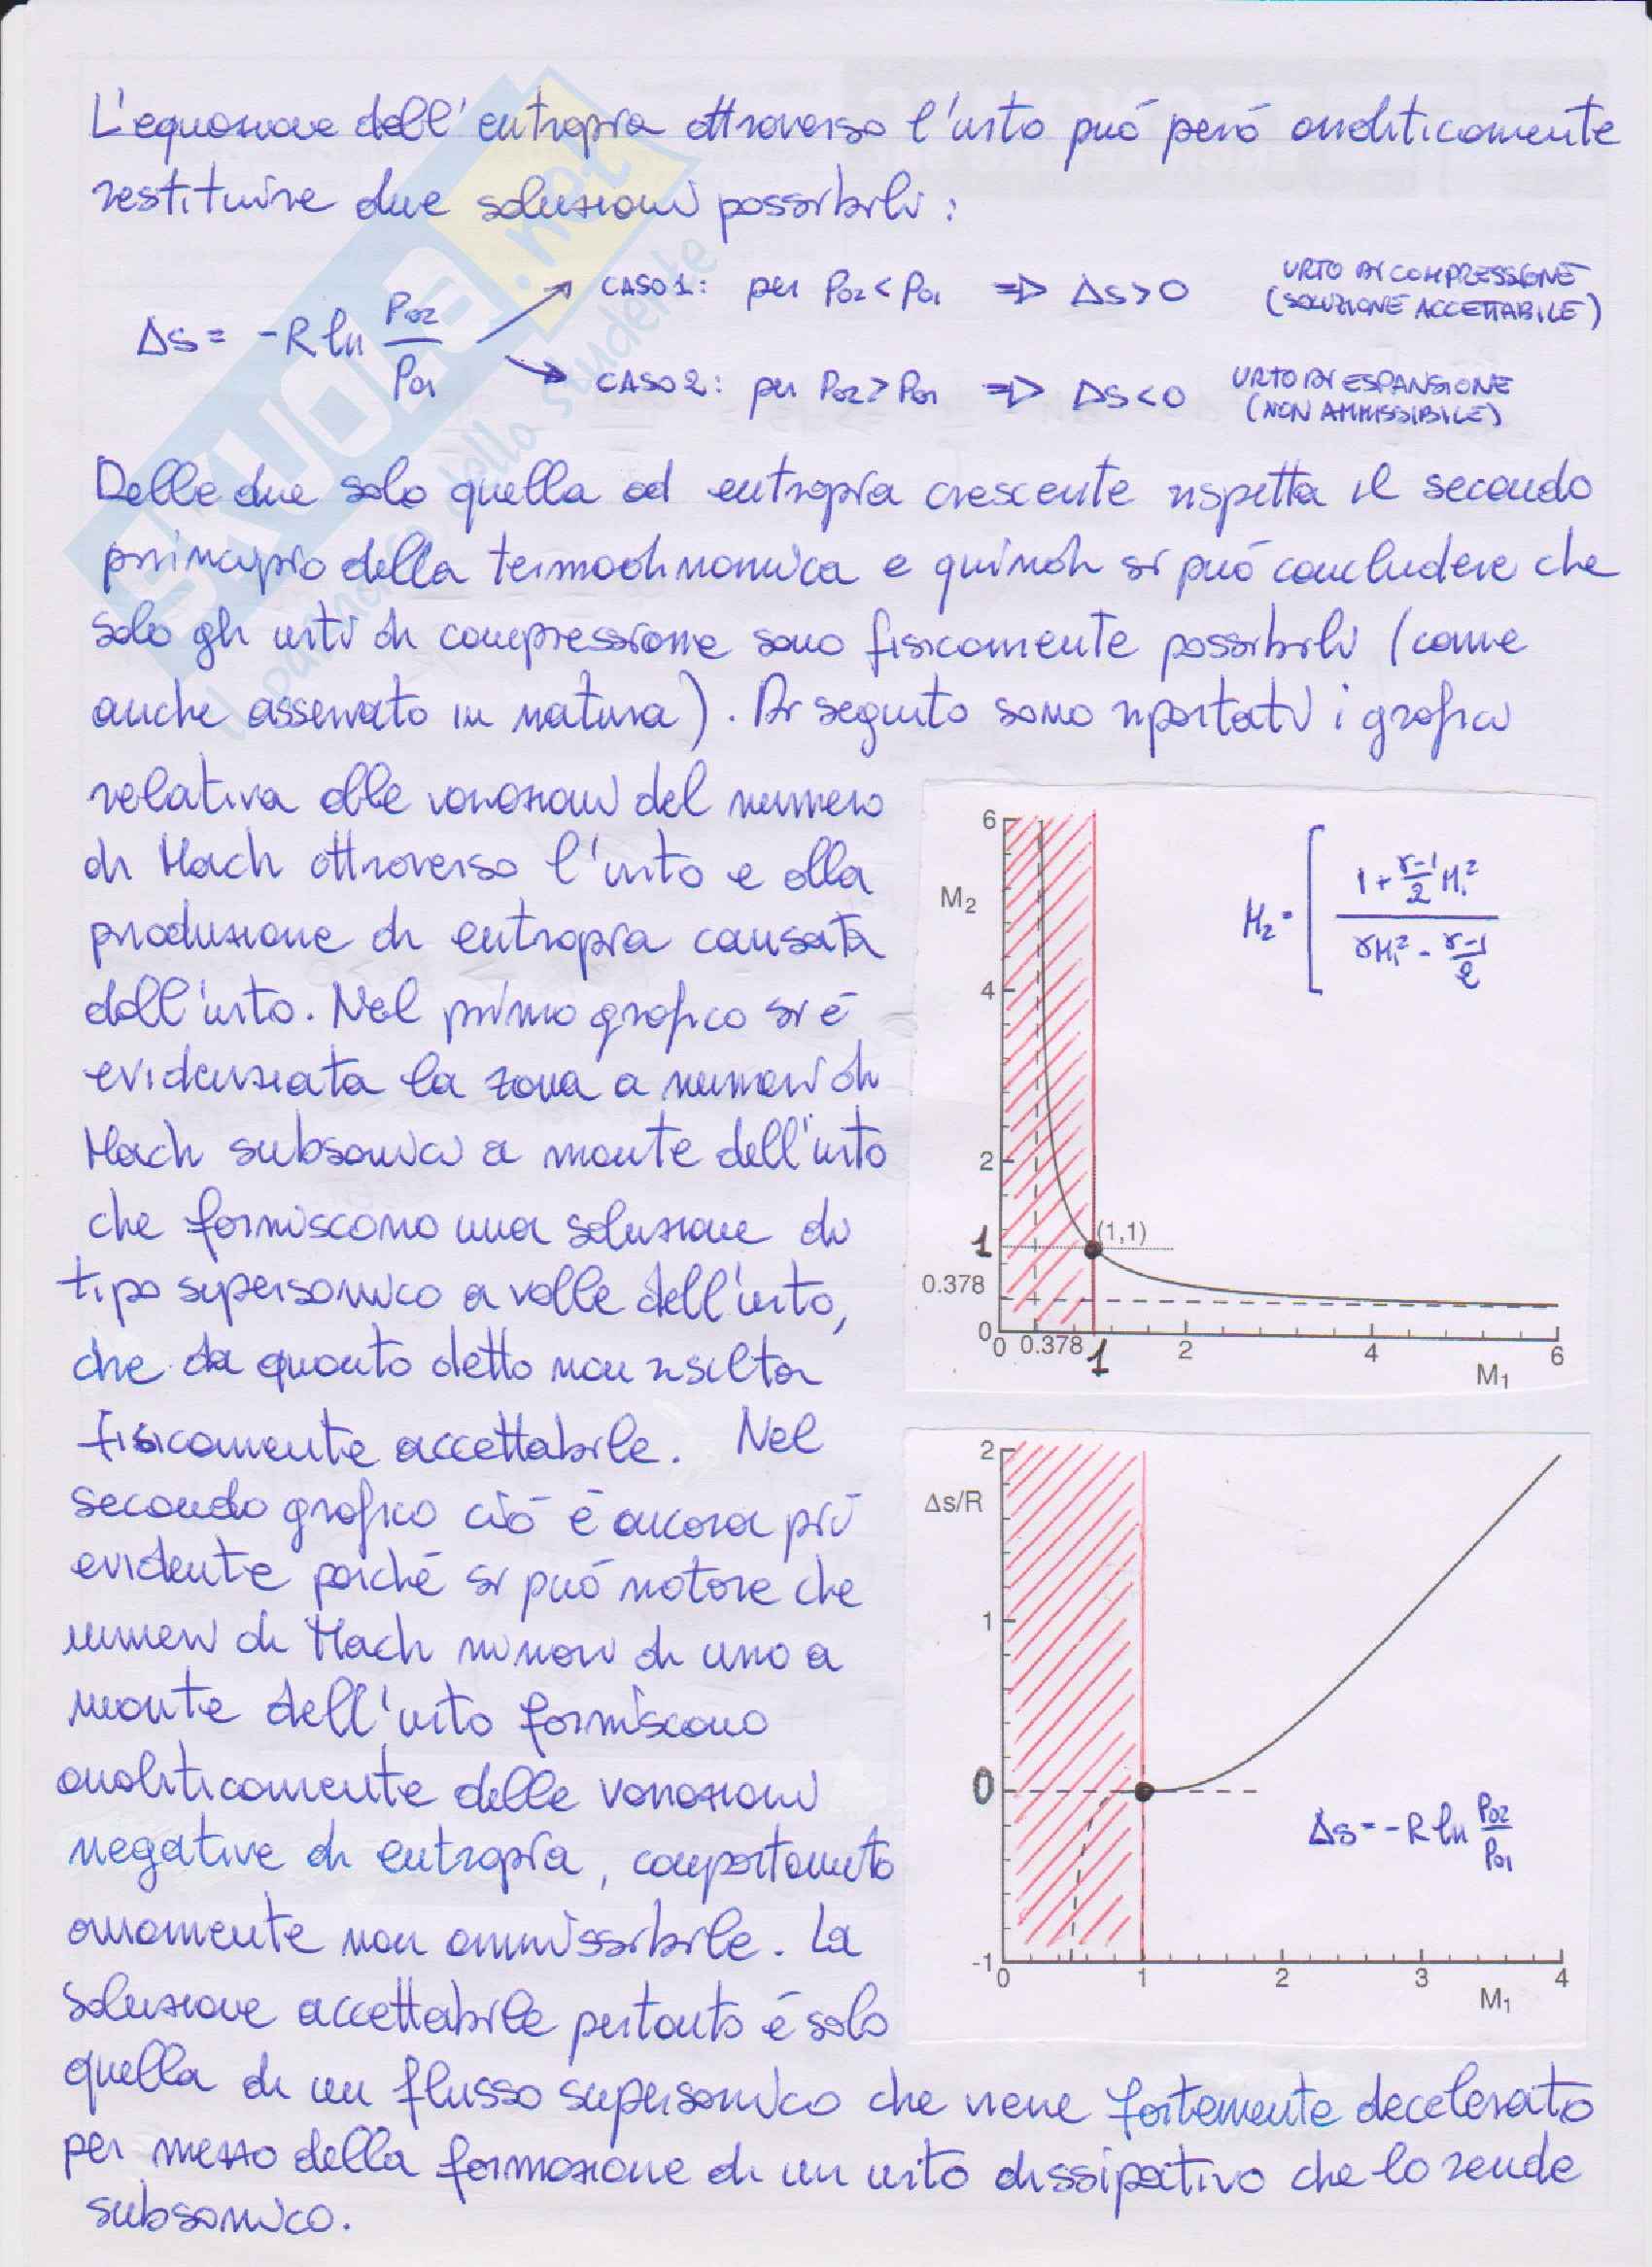 L'equazione dell'entropia attraverso l'urto può però analiticamente
restituire due soluzioni possibili:
Δs = -R ln P02/P01
CASO 1: per P02 < P01 ⇒ Δs > 0 URTO DI COMPRESSIONE (SOLUZIONE ACCETTABILE)
CASO 2: per P02 > P01 ⇒ Δs < 0 URTO DI ESPANSIONE (NON AMMISSIBILE)
Delle due solo quella ad entropia crescente rispetta il secondo
principio della termodinamica e quindi si può concludere che
solo gli urti di compressione sono fisicamente possibili (come
anche osservato in natura). Di seguito sono riportati i grafici
relativa alle variazioni del numero
di Mach attraverso l'urto e alla
produzione di entropia causata
dall'urto. Nel primo grafico si è
evidenziata la zona a numeri di
Mach subsonici a monte dell'urto
che forniscono una soluzione di
tipo supersonico a valle dell'urto,
che da quanto detto non risulta
fisicamente accettabile. Nel
secondo grafico ciò è ancora più
evidente poiché si può notare che
numeri di Mach minori di uno a
monte dell'urto forniscono
analiticamente delle variazioni
negative di entropia, comportamento
ovviamente non ammissibile. La
soluzione accettabile pertanto è solo
quella di un flusso supersonico che viene fortemente decelerato
per mezzo della formazione di un urto dissipativo che lo rende
subsonico.
6
M2
4
2
1
0.378
0
(1,1)
M2 = [ (1 + γ-1/2 M1²) / (γM1² - γ-1/2)
0 0.378 1 2 4 6
M1
2
Δs/R
1
0
-1
Δs = -R ln P02/P01
0 1 2 3 4
M1
SKUOLA.net
il paradiso dello studente